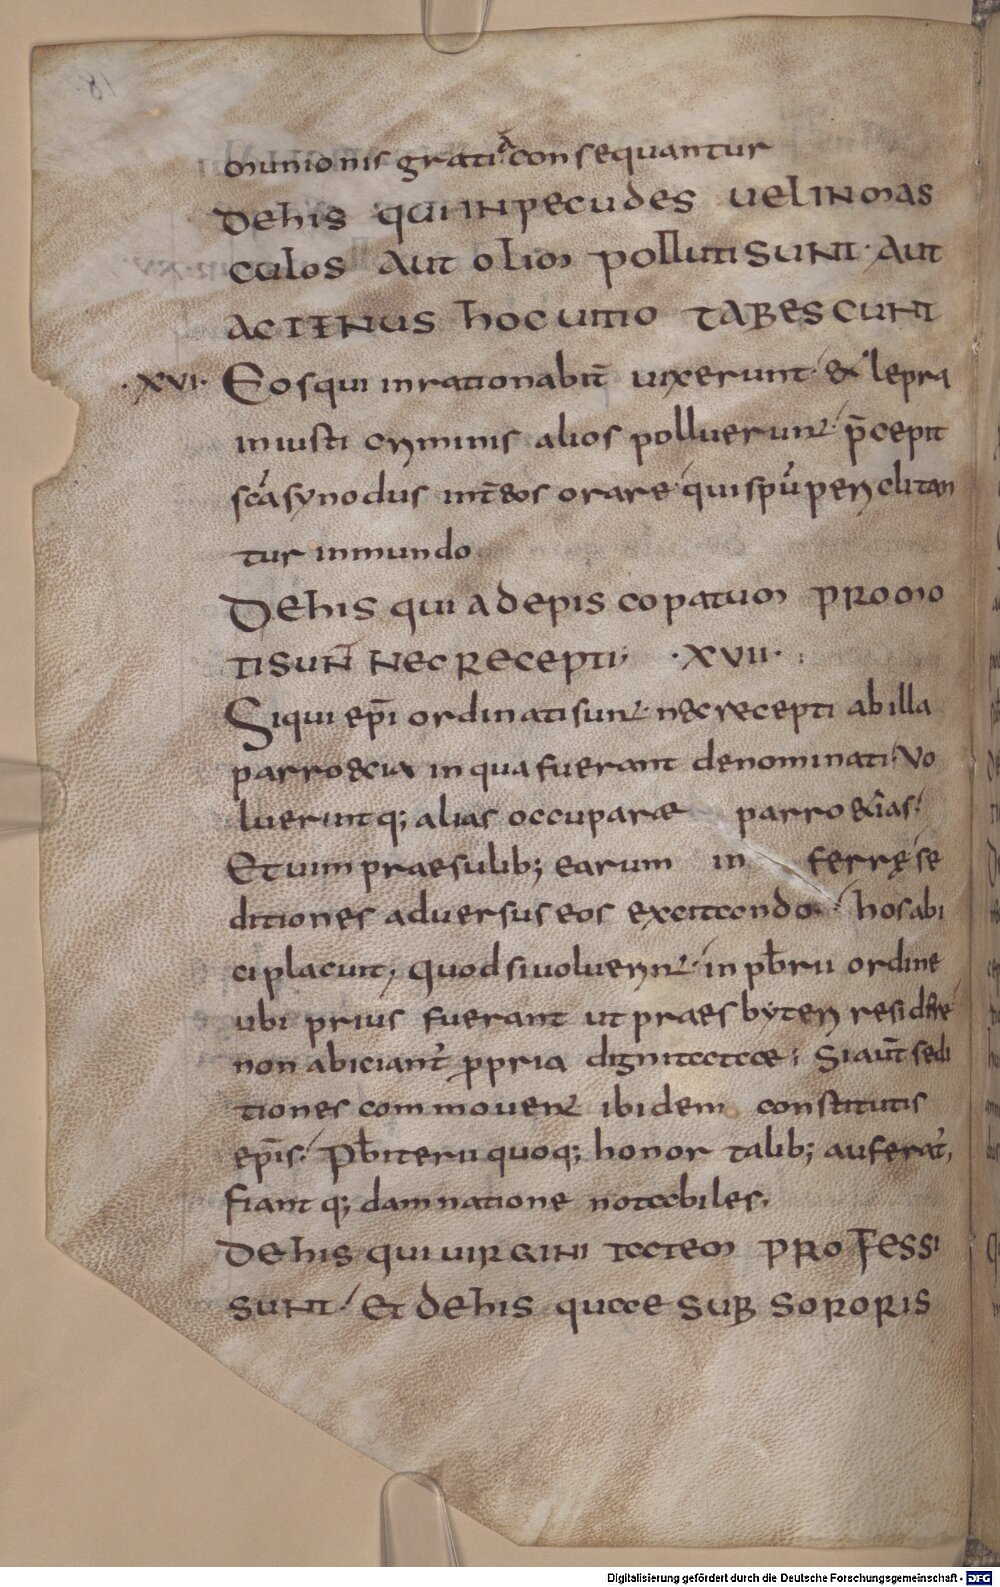 munionis gratiā consequantur
DEhIS QUI INPECUDES UEL INMAS
CULOS AUT OLIM POLLUTI SUNT· AUT
ACTENUS hOCUITIO TABESCUNT
·XVI· Eosqui inrationabilit̄ uixerunt· & lepra
iniusti criminis alios polluerunt· p̄cepit
sc̄asynodus int̄eos orare quisp̄uperyclitan
tur inmundo
DEhIS QUI ADEPISCOPATUM PROMO
TISUNT̄ NECRECEPTI; ·XVII·
Siqui ep̄i ordinatisunt· necrecepti abilla
parroecia inquafuerant denominati· Vo
luerintq; alias occuparae parroecias·
Etuim praesulib; earum in ferręse
ditiones aduersuseos excitando· hosabi
ciplacuit; Quodsiuoluerint· inpb̄rii ordine
ubi prius fuerant utpraesbyteri residere
non abiciant̄ ppria dignitatae; Siaut̄sedi
tiones commouent· ibidem constitutis
ep̄is· Pb̄iterii quoq; honor talib; auferat̄,
fiantq; damnatione notabiles·
DEhIS QUI UIRGINITATEM PROFESSI
SUNT· ET DEhIS QUAE SUB SORORIS
Digitalisierung gefördert durch die Deutsche Forschungsgemeinschaft - DFG